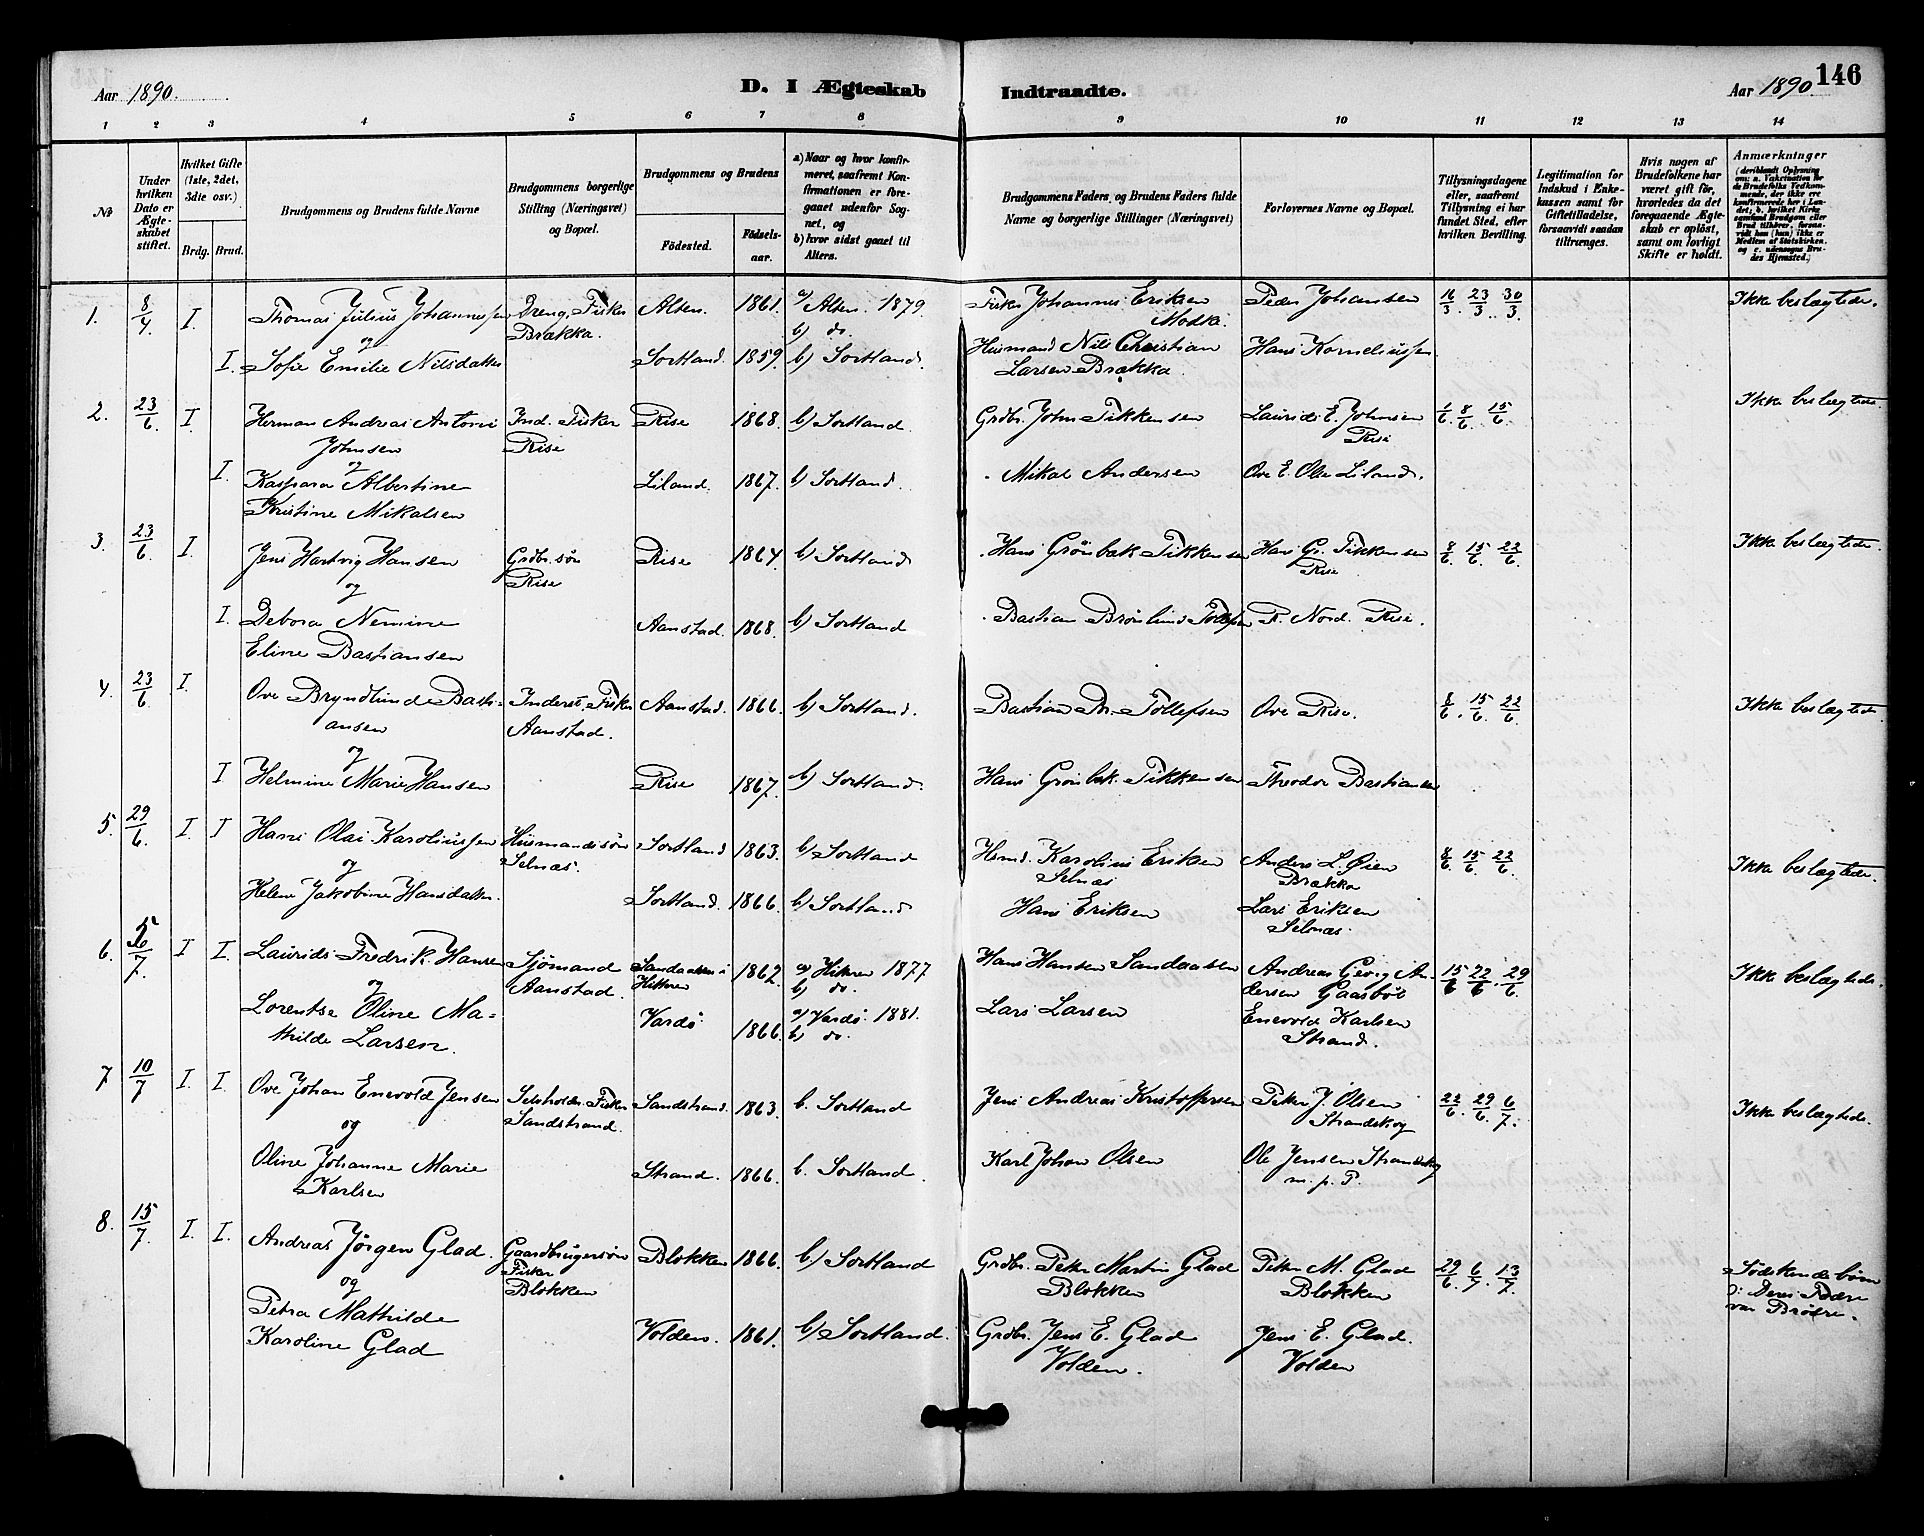 146
Aar 1890. D. I Ægteskab Indtraadte. Aar 1890.
1 2 3 4 5 6 7 8 9 10 11 12 13 14
No
Under hvilken Dato er Ægteskabet stiftet.
Hvilket Gifte (1ste, 2det, 3die osv.)
Brdg. Brud.
Brudgommens og Brudens fulde Navne
Brudgommens borgerlige Stilling (Næringsvei) og Bopæl.
Brudgommens og Brudens
Födested. Födselsaar.
a) Naar og hvor konfirmeret, saafremt Konfirmationen er foregaaet udenfor Sognet, og
b) hvor sidst gaaet til Alters.
Brudgommens Faders og Brudens Faders fulde Navne og borgerlige Stillinger (Næringsvei)
Forlovernes Navne og Bopæl.
Tillysningsdagene eller, saafremt Tillysning ei har fundet Sted, efter hvilken Bevilling.
Legitimation for Indskud i Enkekassen samt for Giftetilladelse, forsaavidt saadan tiltrænges.
Hvis nogen af Brudefolkene har været gift før, hvorledes da det foregaaende Ægteskab er oplöst, samt om lovligt Skifte er holdt.
Anmærkninger
1. 8/4 I. Thomas Julius Johannessen Dreng, Fisker Alten. 1861. a/ Alten. 1879. Fisker Johannes Eriksen Peder Johansen 16/3. 23/3. 30/3. Ikke beslægtede.
og Brækka. b) do.
I. Sofie Emilie Nilsdatter Sortland. 1859. b) Sortland. Husmand Nils Christian Hans Korneliussen
Larsen Brækka.
2. 23/6 I. Herman Andreas Antoni Ind. Fisker Rise 1868. b) Sortland. Grdbr. John Tikkensen Laurids E. Johnsen 1/6. 8/6. 15/6. Ikke beslægtede.
Johnsen Rise Rise
og
I. Kaspara Albertine Liland. 1867. b) Sortland. Mikal Andersen Ove E. Olsen Liland.
Kristine Mikalsen
3. 23/6 I. Jens Hartvig Hansen Grdbr. søn Rise 1864. b) Sortland Hans Grönbek Tikkensen Hans Gr. Tikkensen 8/6. 15/6. 22/6. Ikke beslægtede.
og Rise Rise
I. Debora Nemine Aanstad. 1868. b) Sortland Bastian Brønlund Tollefsen P. Nord. Rise.
Eline Bastiansen
4. 23/6 I. Ove Bryndlund Basti- Inderst, Fisker Aanstad. 1866. b) Sortland. Bastian Br. Tollefsen Ove Rise. 8/6. 15/6. 22/6. Ikke beslægtede.
ansen Aanstad.
og
I Helmine Marie Hansen Rise 1867. b) Sortland. Hans Grönbek Tikkensen Theodor Bastiansen
5. 29/6 I I Hans Olai Karoliussen Husmandssøn Sortland 1863. b) Sortland Hsmd. Karolius Eriksen Anders L. Øien 8/6. 15/6. 22/6. Ikke beslægtede.
og Selnæs. Selnæs Brækka
Helene Jakobine Hansdatter Sortland. 1866. b) Sortland Hans Eriksen Lars Eriksen
Selnæs.
6. 5/7. I I. Laurids Fredrik Hansen Sjömand Sandaasen i 1862. a) Hitteren 1877 Hans Hansen Sandaasen Andreas Georg An- 15/6 22/6. 29/6. Ikke beslægtede.
og Aanstad. Hitteren b) do. dersen Gaasböl
Lorentse Oline Ma- Vardö 1866. a) Vardö. 1881. Lars Larsen Enevold Karlsen
thilde Larsen. b) do. Strand.
7 10/7 I. I. Ove Johan Enevold Jensen Selvholdn. Fisker Sandstrand. 1863. b. Sortland Jens Andreas Kristoffersen Peter J. Olsen 22/6. 29/6. 6/7. Ikke beslægtede.
og Sandstrand. Strandskog
Oline Johanne Marie Strand. 1866. b. Sortland. Karl Johan Olsen Ole Jensen Strandskog
Karlsen m. p. P.
8. 15/7. I. I. Andreas Jörgen Glad. Gaardbrugersøn Blokken 1866. b) Sortland Grdbr. Peter Martin Glad Peter M. Glad 29/6. 6/7. 13/7. Södskendebørn
og Fisker Blokken Blokken Deres Fædre
Petra Mathilde Blokken var Brödre.
Karoline Glad Volden. 1861. b) Sortland. Grdbr. Jens E. Glad Jens E. Glad.
Volden. Volden